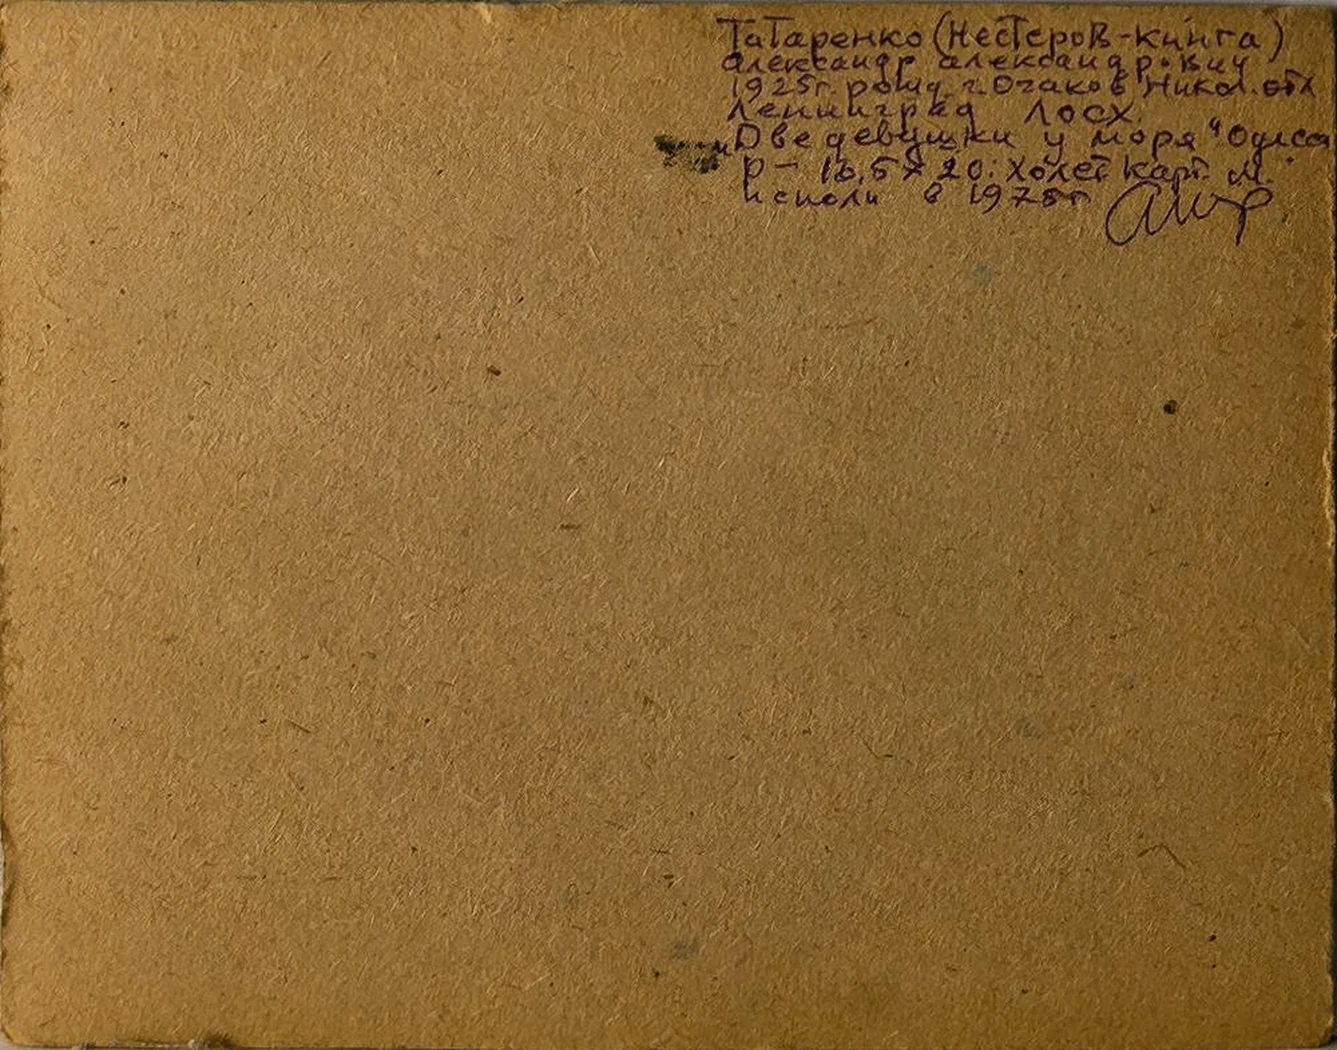 Татаренко (Нестеров-Кинга)
Александр Александрович
1925г. рожд г. Очаков Никол. обл
Ленинград ЛОСХ.
"Две девушки у моря" Одесса
Р- 16,5 х 20. Холст карт. м.
исполн в 1978г